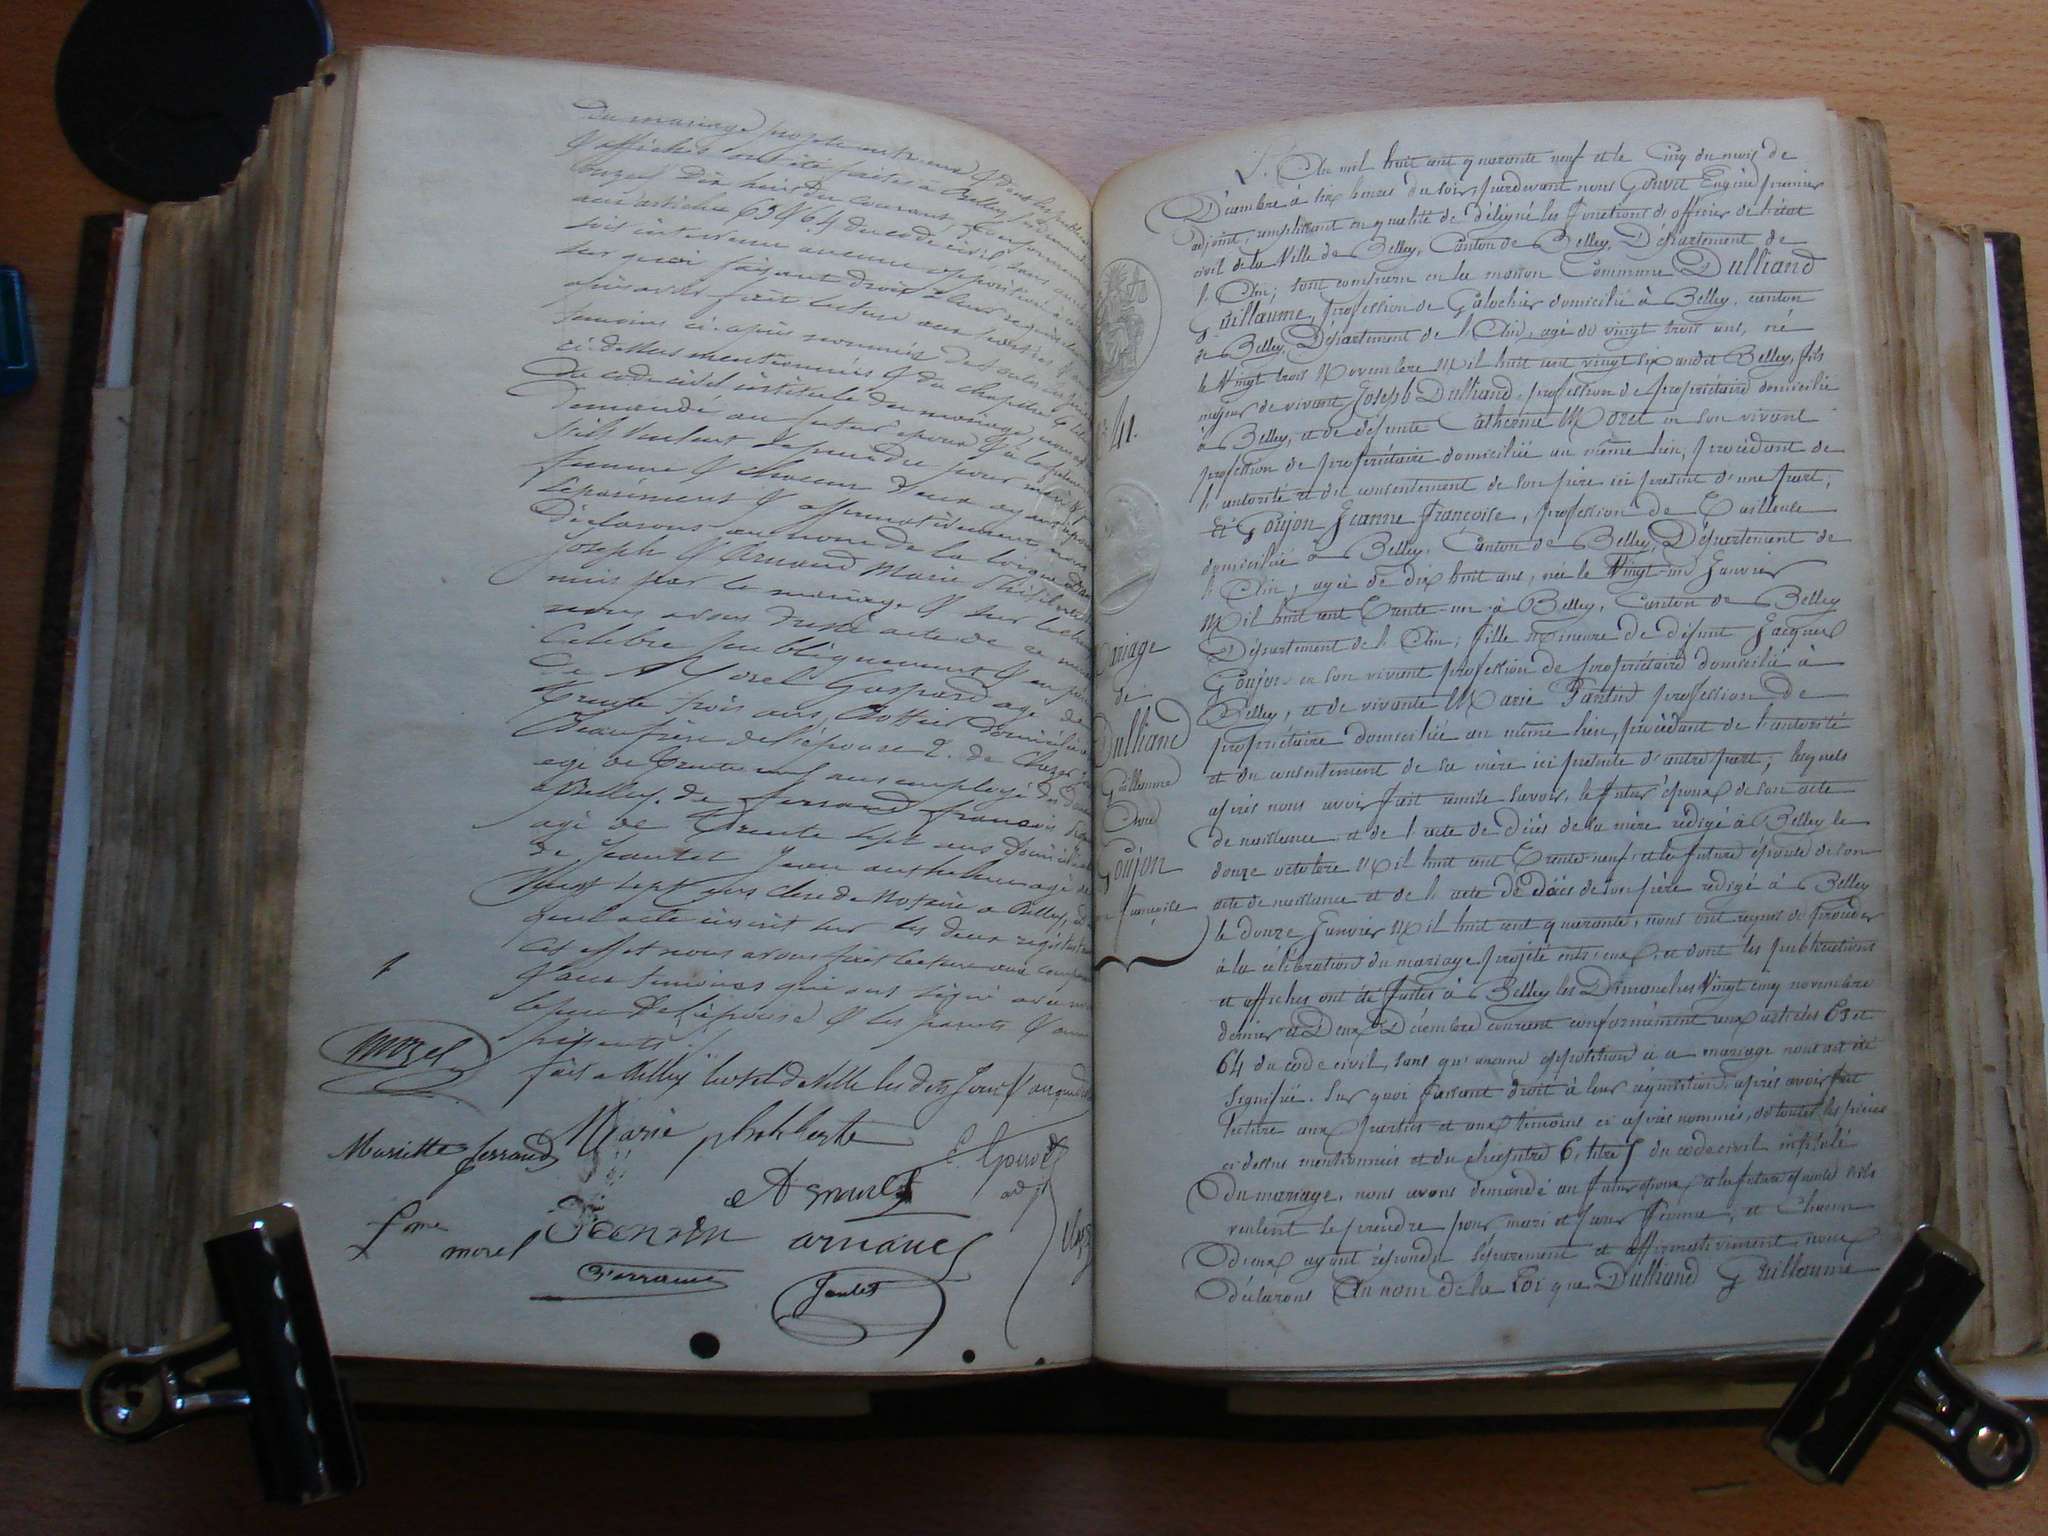 du mariage projeté entre eux & dont les publications
& affiches ont été faites à Belley les dimanches
onze & dix huit du courant, conformément
aux articles 63 & 64 du code civil sans qu'il
soit intervenu aucune opposition à ce
sur quoi faisant droit à leur réquisition
après avoir fait lecture aux parties & aux
témoins ci-après nommés de toutes les pièces
ci-dessus mentionnées & du chapitre 6 titre
du code civil intitulé du mariage, nous avons
demandé au futur époux & à la future
s'ils veulent se prendre pour mari &
femme & chacun d'eux ayant répondu
séparément & affirmativement nous
déclarons au nom de la loi que
Joseph & Arnaud Marie
unis par le mariage & sur le champ
nous avons dressé acte de ce mariage
célébré publiquement & en présence
de Morel Gaspard agé de
trente trois ans, domicilié
Beaufrère de l'épouse 2. de
agé de trente ans employé
à Belley, de Ferrand François
agé de trente sept ans domicilié
de Jantet Jean anthelme agé de
vingt sept ans clerc de Notaire à Belley,
quel acte inscrit sur les deux registres
cet effet nous avons fait lecture aux comparants
& aux témoins qui ont signé avec nous
le père de l'épouse & les parents & amis
présents.
fait à Belley hotel de ville les dits Jour & an que dessus
morel
Mariette ferrand
Marie
E. Gouvet
adjt
morel
arnaud
ferrand
Jantet
L'An mil huit cent quarante neuf et le Cinq du mois de
Décembre à six heures du soir, pardevant nous Gouvet Eugène premier
adjoint, remplissant en qualité de délégué les fonctions d'officier de l'état
civil de la Ville de Belley, Canton de Belley, Département de
l'Ain; sont comparu en la maison Commune Dulliand
Guillaume, profession de Galochier domicilié à Belley, canton
de Belley, Département de l'Ain, agé de vingt trois ans, né
le Vingt trois Novembre Mil huit cent vingt six audit Belley, fils
majeur de vivant Joseph Dulliand, profession de propriétaire domicilié
à Belley, et de défunte Catherine Moret en son vivant
profession de propriétaire domiciliée au même lieu, procédant de
l'autorité et du consentement de son père ici présent d'une part;
Et Goujon Jeanne Françoise, profession de Tailleuse
domiciliée à Belley, Canton de Belley, Département de
l'Ain, agée de dix huit ans, née le Vingt-un Janvier
Mil huit cent Trente-un à Belley, Canton de Belley
Département de l'Ain; fille mineure de défunt Jacques
Goujon en son vivant profession de propriétaire domicilié à
Belley, et de vivante Marie Fantin profession de
propriétaire domiciliée au même lieu, procédant de l'autorité
et du consentement de sa mère ici présente d'autre part; lesquels
après nous avoir fait remise savoir, le futur époux de son acte
de naissance et de l'acte de décès de sa mère rédigé à Belley le
douze octobre Mil huit cent Trente-neuf et la future épouse de son
acte de naissance et de l'acte de décès de son père rédigé à Belley
le douze Janvier Mil huit cent quarante, nous ont requis de procéder
à la célébration du mariage projeté entre eux, et dont les publications
et affiches ont été faites à Belley les Dimanches Vingt cinq novembre
dernier et Deux Décembre courant conformément aux articles 63 et
64 du code civil, sans qu'aucune opposition à ce mariage nous ait été
signifié. Sur quoi faisant droit à leur réquisition, après avoir fait
lecture aux parties et aux témoins ci après nommés, de toutes les pièces
ci dessus mentionnées et du chapitre 6, titre 5 du code civil intitulé
Du mariage, nous avons demandé au futur époux et la future épouse s'ils
veulent se prendre pour mari et pour femme, et Chacun
d'eux ayant répondu séparement et affirmativement, nous
déclarons Au nom de la Loi que Dulliand Guillaume
41.
Mariage
de
Dulliand
Guillaume
Avec
Goujon
Françoise